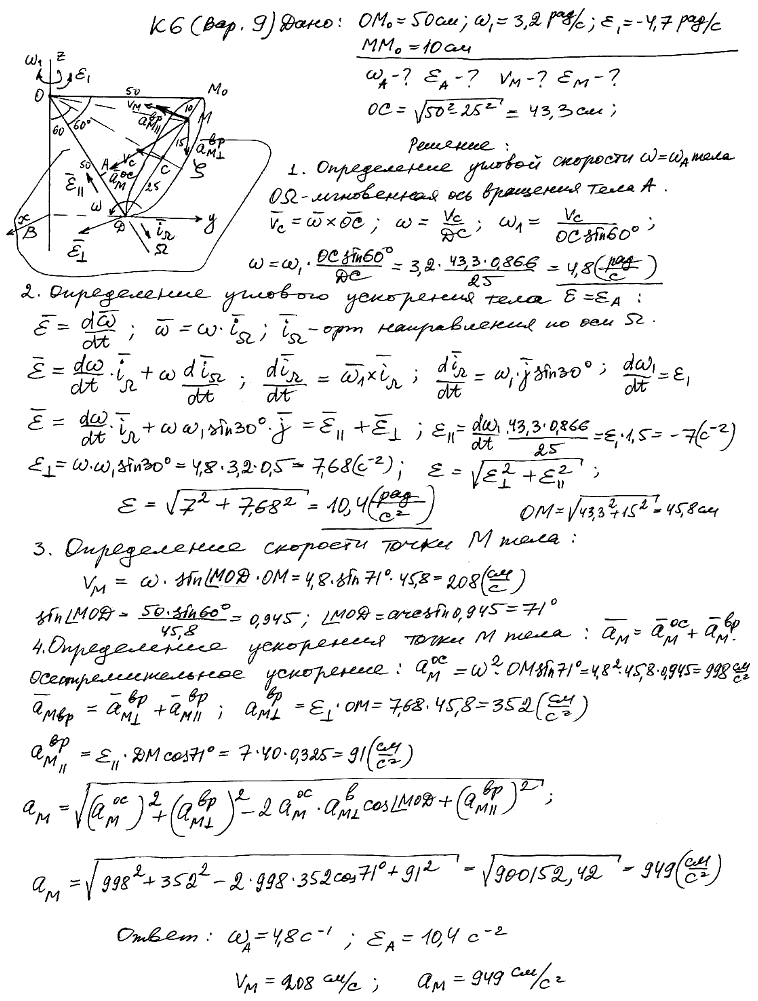 К6 (Вар. 9) Дано: OM₀ = 50 см; ω₁ = 3,2 рад/с; ε₁ = -4,7 рад/с
MM₀ = 10 см
ω_A - ? ε_A - ? V_M - ? ε_M - ?
OC = √(50² - 25²) = 43,3 см;
ω₁ z ε₁
O 50 M₀
V_M 10 M
a_M∥^вр
60 60° 15 a_M⊥^вр
50 A V_C C ζ
ε̄∥ a_M^ос 25
ω
x B D y
ε̄⊥ i̅_Ω
Ω
Решение:
1. Определение угловой скорости ω = ω_A тела
OΩ - мгновенная ось вращения тела A.
V̄_C = ω̄ × OC̄; ω = V_C/DC; ω₁ = V_C/(OC sin60°);
ω = ω₁ · OC sin60°/DC = 3,2 · 43,3·0,866/25 = 4,8 (рад/с)
2. Определение углового ускорения тела ε̄ = ε_A:
ε̄ = dω̄/dt; ω̄ = ω · i̅_Ω; i̅_Ω - орт направления по оси Ω.
ε̄ = dω/dt · i̅_Ω + ω di̅_Ω/dt; di̅_Ω/dt = ω̄₁ × i̅_Ω; di̅_Ω/dt = ω₁ · j̄ sin30°; dω₁/dt = ε₁
ε̄ = dω/dt · i̅_Ω + ω ω₁ sin30° · j̄ = ε̄∥ + ε̄⊥; ε∥ = dω₁/dt · 43,3·0,866/25 = ε₁ · 1,5 = -7 (с⁻²)
ε⊥ = ω · ω₁ sin30° = 4,8 · 3,2 · 0,5 = 7,68 (с⁻²); ε = √(ε⊥² + ε∥²);
ε = √(7² + 7,68²) = 10,4 (рад/с²) OM = √(43,3² + 15²) = 45,8 см
3. Определение скорости точки M тела:
V_M = ω · sin∠MOD · OM = 4,8 · sin71° · 45,8 = 208 (см/с)
sin∠MOD = 50·sin60°/45,8 = 0,945; ∠MOD = arcsin0,945 = 71°
4. Определение ускорения точки M тела: ā_M = ā_M^ос + ā_M^вр.
Осестремительное ускорение: a_M^ос = ω² · OM sin71° = 4,8² · 45,8 · 0,945 = 998 см/с²
ā_Mвр = ā_M⊥^вр + ā_M∥^вр; a_M⊥^вр = ε⊥ · OM = 7,68 · 45,8 = 352 (см/с²)
a_M∥^вр = ε∥ · DM cos71° = 7 · 40 · 0,325 = 91 (см/с²)
a_M = √((a_M^ос)² + (a_M⊥^вр)² - 2 a_M^ос · a_M⊥^в cos∠MOD + (a_M∥^вр)²);
a_M = √(998² + 352² - 2·998·352 cos71° + 91²) = √900152,42 = 949 (см/с²)
Ответ: ω_A = 4,8 с⁻¹; ε_A = 10,4 с⁻²
V_M = 208 см/с; a_M = 949 см/с²